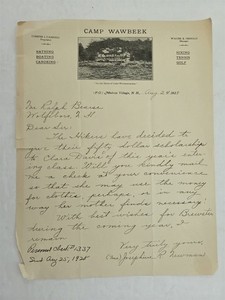 CAMP WAWBEEK
BATHING
BOATING
CANOEING
HIKING
TENNIS
GOLF
Melvin Village, N. H., Aug 24
Mr Ralph
Wolfeboro N. H
Dear Sir:
The Hikers have decided to
give their fifty dollar scholarship
to Clara Davis of this year's
class. Will you kindly mail
me a check at your convenience
so that she may use the money
for clothes, perhaps, or in any
way her mother finds necessary.
With best wishes for Brewster
during the coming year, I
remain
Very truly yours,
(Mrs) Josephine P.
Personal Check # 1337
Sent Aug 25, 1928